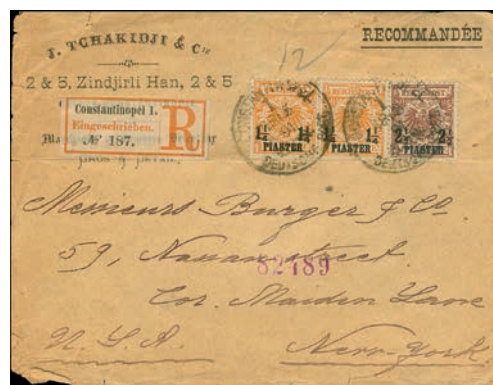 J. TCHAKIDJI & Cie
RECOMMANDÉE
12
2 & 5, Zindjirli Han, 2 & 5
Constantinopel 1.
Eingeschrieben.
№ 187.
R
REICHSPOST
1¼ 1¼
PIASTER
1¼ 1¼
PIASTER
2½ 2½
PIASTER
DEUTSCHE
Messieurs Burger & Co
59, Nassau street
82489
Cor. Maiden Lane
U. S. A. New-York.